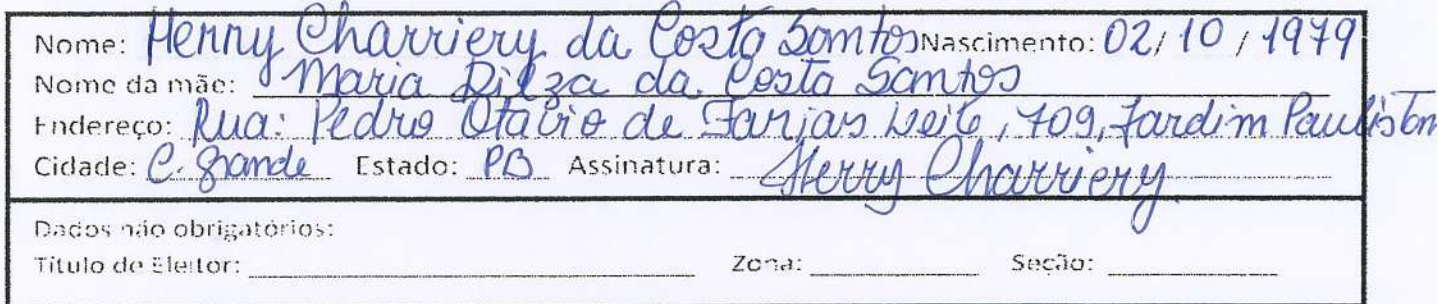 Nome: Henry Charriery da Costa Santos Nascimento: 02/10/1979
Nome da mãe: Maria Dilza da Costa Santos
Endereço: Rua: Pedro Otavio de Farias Leite, 709, Jardim Paulistan
Cidade: C. Grande Estado: PB Assinatura: Henry Charriery
Dados não obrigatórios:
Título de Eleitor: Zona: Seção: